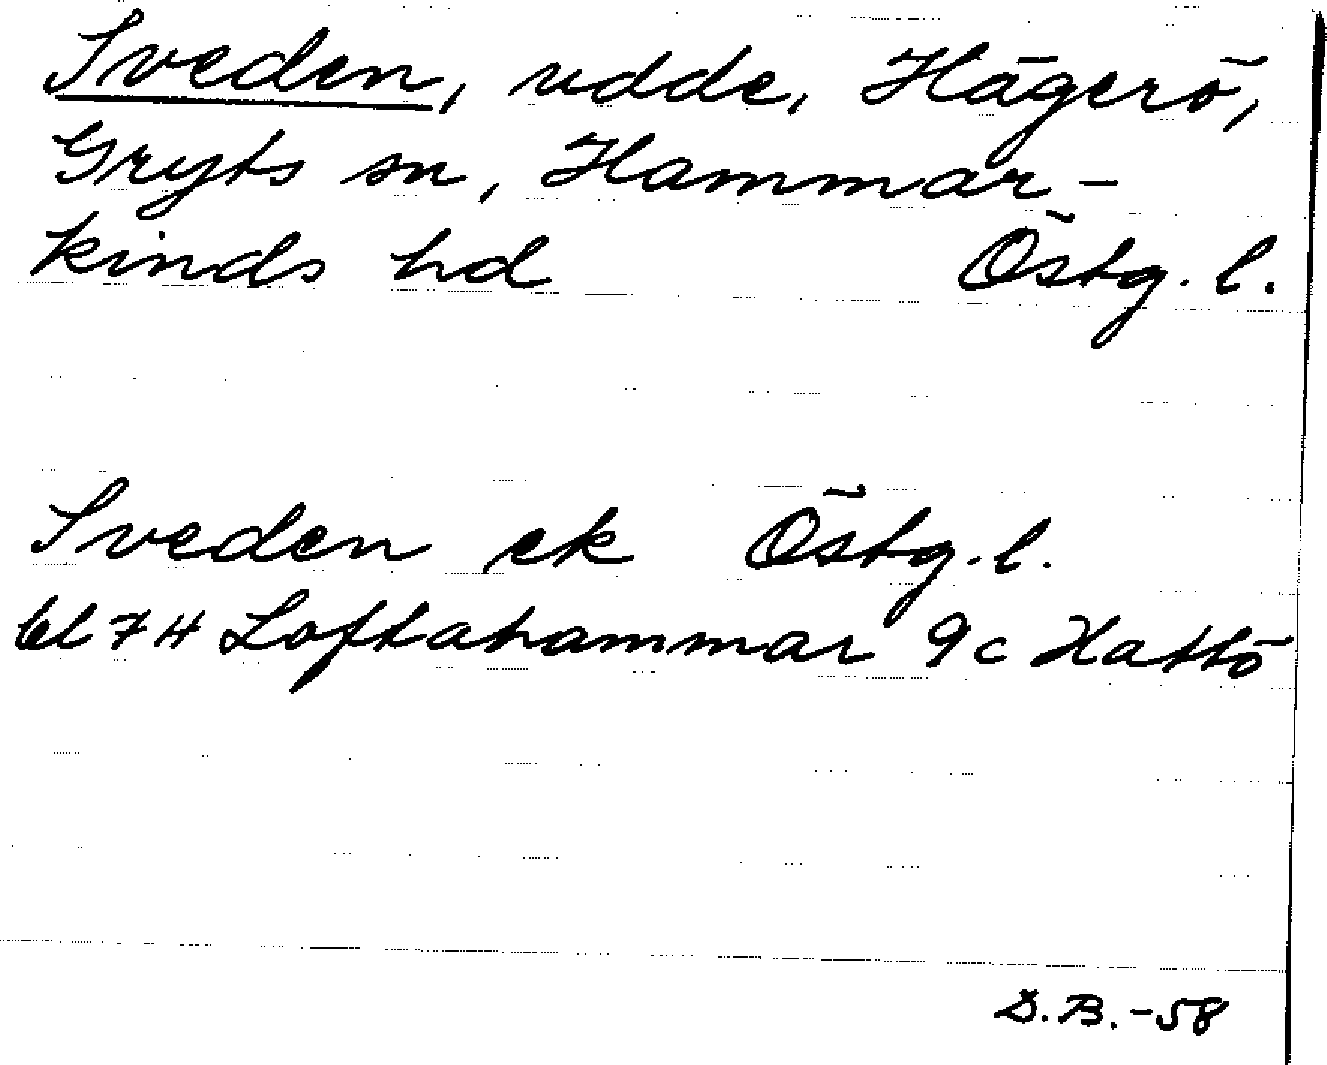 Sveden, udde, Hägerö,
Gryts sn, Hammar-
kinds hd Östg. l.
Sveden ek Östg. l.
bl 7H Loftahammar 9c Hattö
D.B. -58